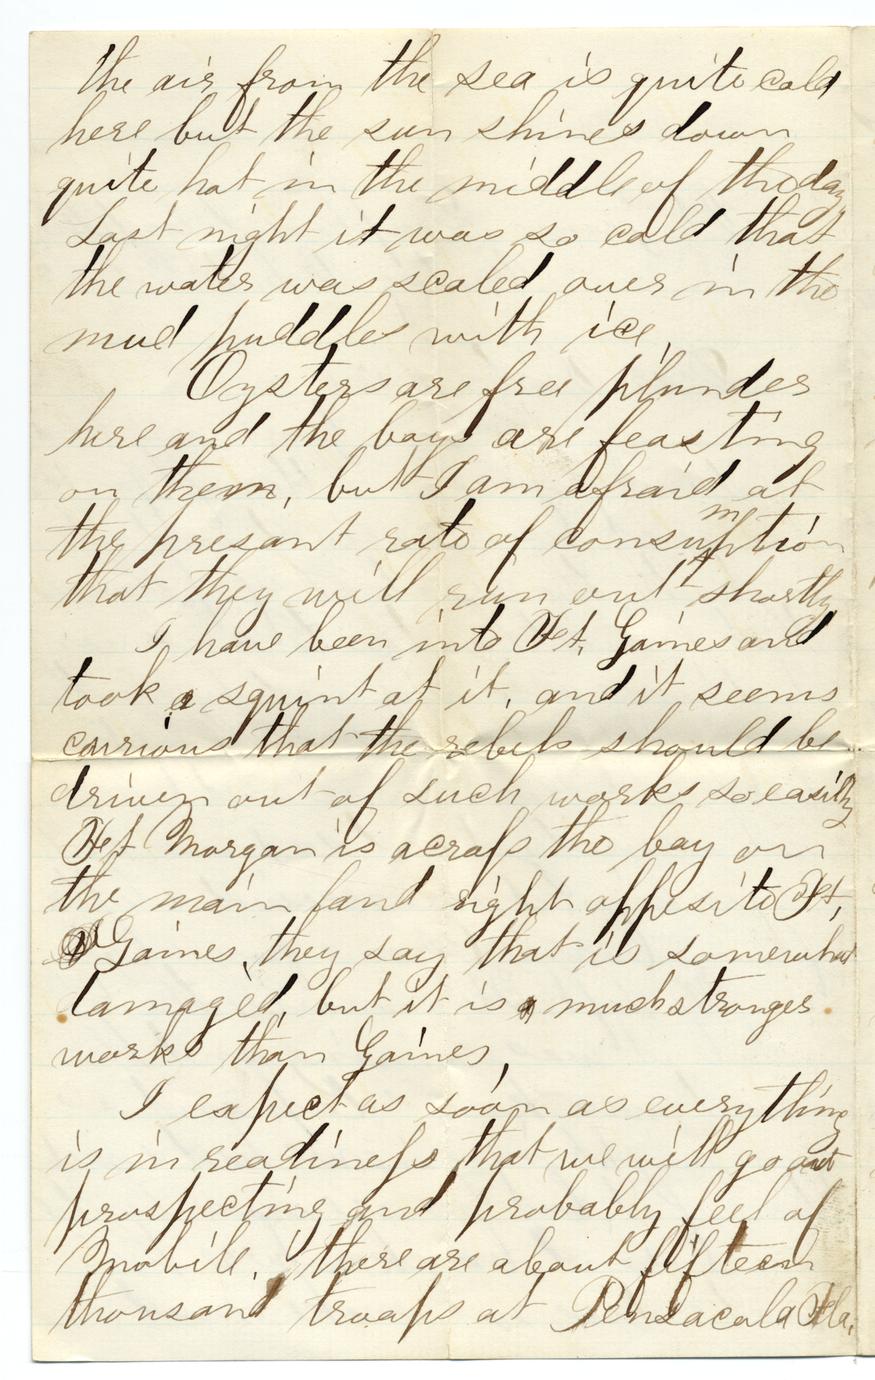 the air from the sea is quite cold
here but the sun shines down
quite hot in the middle of the day
Last night it was so cold that
the water was scaled over in the
mud puddles with ice,
Oysters are free plunder
here and the boys are feasting
on them, but I am afraid at
the presant rate of consumption
that they will run out shortly
I have been into Ft, Gaines and
took a squint at it, and it seems
courious that the rebels should be
driven out of such works so easily
Ft Morgan is across the bay on
the main land right oppisite Ft,
Gaines, they say that is somewhat
damaged, but it is a much stronger
works than Gaines,
I expect as soon as everything
is in readiness that we will go out
prospecting and probably feel of
Mobile, there are about fifteen
thousand troops at Pensacola Fla,